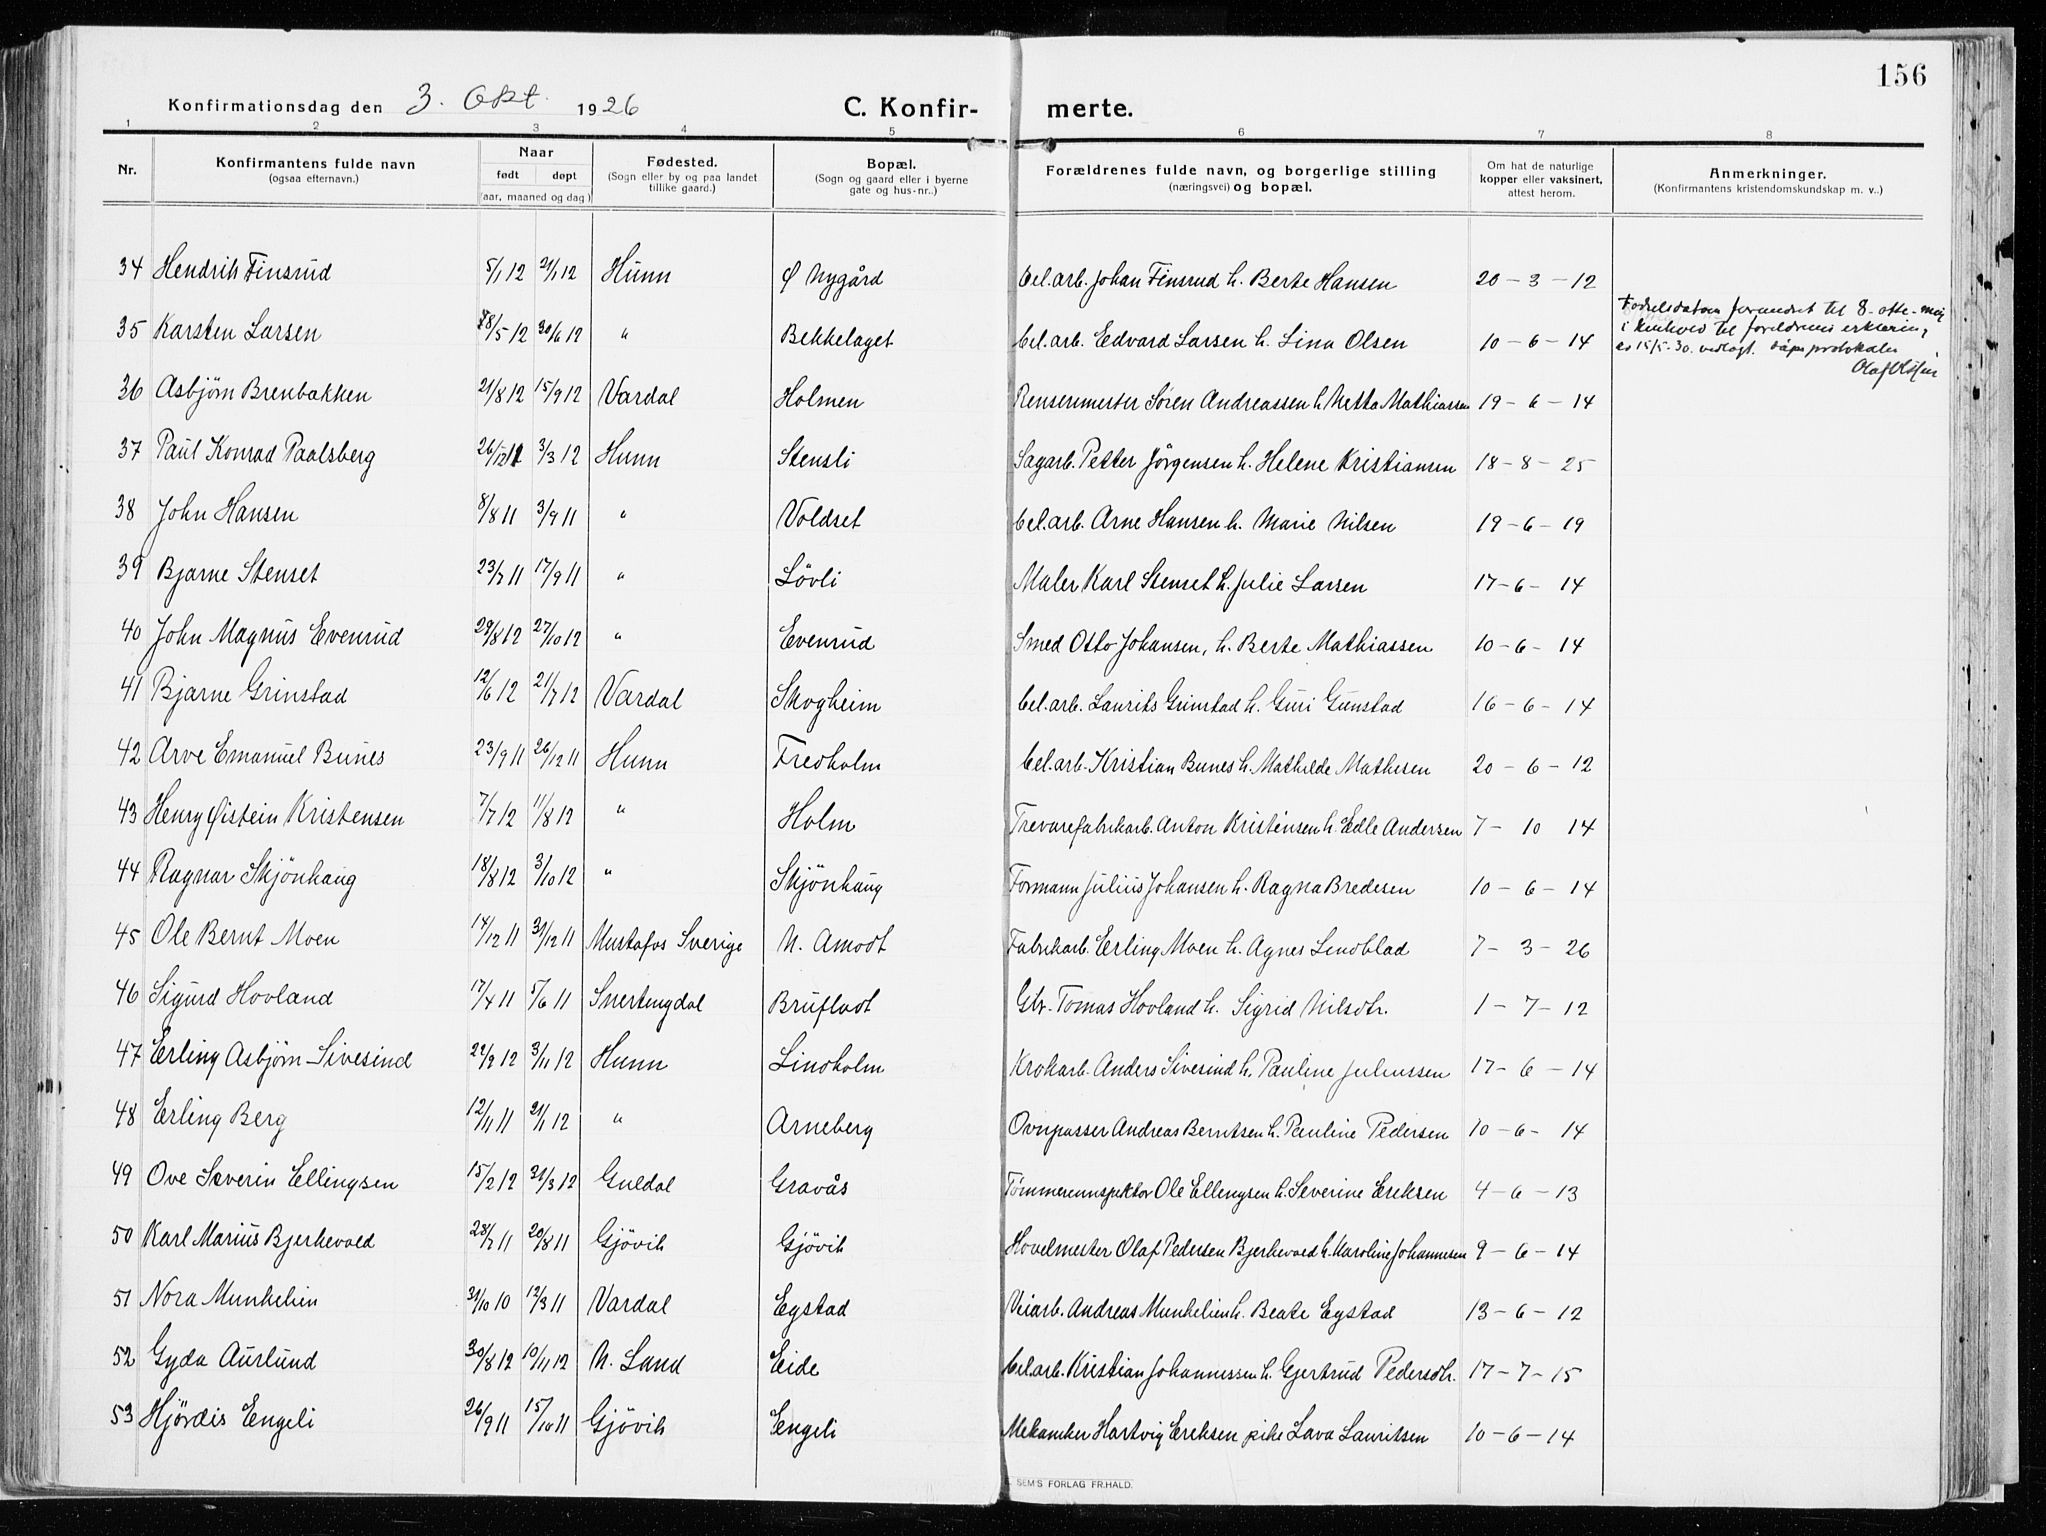 156
Konfirmationsdag den 3. Okt. 1926 C. Konfir- merte.
1 2 3 4 5 6 7 8
Nr. Konfirmantens fulde navn (ogsaa efternavn.) Naar født døpt (aar, maaned og dag) Fødested. (Sogn eller by og paa landet tillike gaard.) Bopæl. (Sogn og gaard eller i byerne gate og hus-nr..) Forældrenes fulde navn, og borgerlige stilling (næringsvei) og bopæl. Om hat de naturlige kopper eller vaksinert, attest herom. Anmerkninger. (Konfirmantens kristendomskundskap m. v..)
34 Hendrik Finsrud 5/1 12 21/1 12 Hunn Ø Nygård Cel.arb. Johan Finsrud h. Berte Hansen 20-3-12
35 Karsten Larsen 8/5 12 30/6 12 " Bekkelaget Cel.arb. Edvard Larsen h. Lina Olsen 10-6-14 Fødselsdatoen forandret til 8-otte-mai i henhold til foreldrenes erklæring av 15/5-30. vedlagt dåpsprotokollen
36 Asbjørn Brenbakken 21/8 12 15/9 12 Vardal Holmen Rensermester Søren Andreassen h. Netta Mathiassen 19-6-14
37 Paul Konrad Paalsberg 26/12 11 3/3 12 Hunn Stensli Sagarb. Petter Jörgensen h. Helene Kristiansen 18-8-25
38 John Hansen 8/8 11 3/9 11 " Voldset Cel.arb. Arne Hansen h. Marie Nilsen 19-6-19
39 Bjarne Stenset 23/7 11 17/9 11 " Lövli Maler Karl Stenset h. Julie Larsen 17-6-14
40 John Magnus Evenrud 29/8 12 27/10 12 " Evenrud Smed Otto Johansen, h. Berte Mathiassen 10-6-14
41 Bjarne Grinstad 12/6 12 21/7 12 Vardal Skogheim Cel.arb. Laurits Grinstad h. Guri Gunstad 16-6-14
42 Arve Emanuel Bunes 23/9 11 26/12 11 Hunn Fredholm Cel.arb. Kristian Bunes h. Mathilde Mathesen 20-6-12
43 Henry Øistein Kristensen 7/7 12 11/8 12 " Holm Trevarefabrikarb. Anton Kristensen h. Edle Andersen 7-10 14
44 Ragnar Skjönhaug 18/8 12 3/10 12 " Skjönhaug Formann Julius Johansen h. Ragna Bredesen 10-6-14
45 Ole Bernt Moen 14/12 11 31/12 11 Mustafos Sverige N. Amodt Fabrikarb. Erling Moen h. Agnes Lindblad 7-3-26
46 Sigurd Hovland 17/4 11 5/6 11 Snertingdal Bruflodt Gbr. Tomas Hovland h. Sigrid Nilsdtr. 1-7-12
47 Erling Asbjørn Sivesind 29/9 12 3/11 12 Hunn Lindholm Krokarb. Anders Sivesind h. Pauline Juliussen 17-6-14
48 Erling Berg 12/11 11 21/1 12 " Arneberg Ovnpasser Andreas Berntsen h. Pauline Pedersen 10-6-14
49 Ove Severin Ellingsen 15/2 12 31/3 12 Guldal Gravås Tömmerinnspektör Ole Ellengsen h. Severine Eriksen 4-6-13
50 Karl Marius Bjerkevold 28/7 11 20/8 11 Gjövik Gjövik Hovelmester Olaf Pedersen Bjerkevold h. Karoline Johannesen 9-6-14
51 Nora Munkelien 31/10 10 12/3 11 Vardal Egstad Veiarb. Andreas Munkelien h. Beate Egstad 13-6-12
52 Gyda Aurlund 30/8 12 10/11 12 N. Land Eide Cel.arb. Kristian Johannessen h. Gjertrud Pedersdtr. 17-7-15
53 Hjördis Engeli 26/9 11 15/10 11 Gjövik Engeli Mekaniker Hartvig Eriksen pike Lava Lauritsen 10-6-14
SEM'S FORLAG FR.HALD.